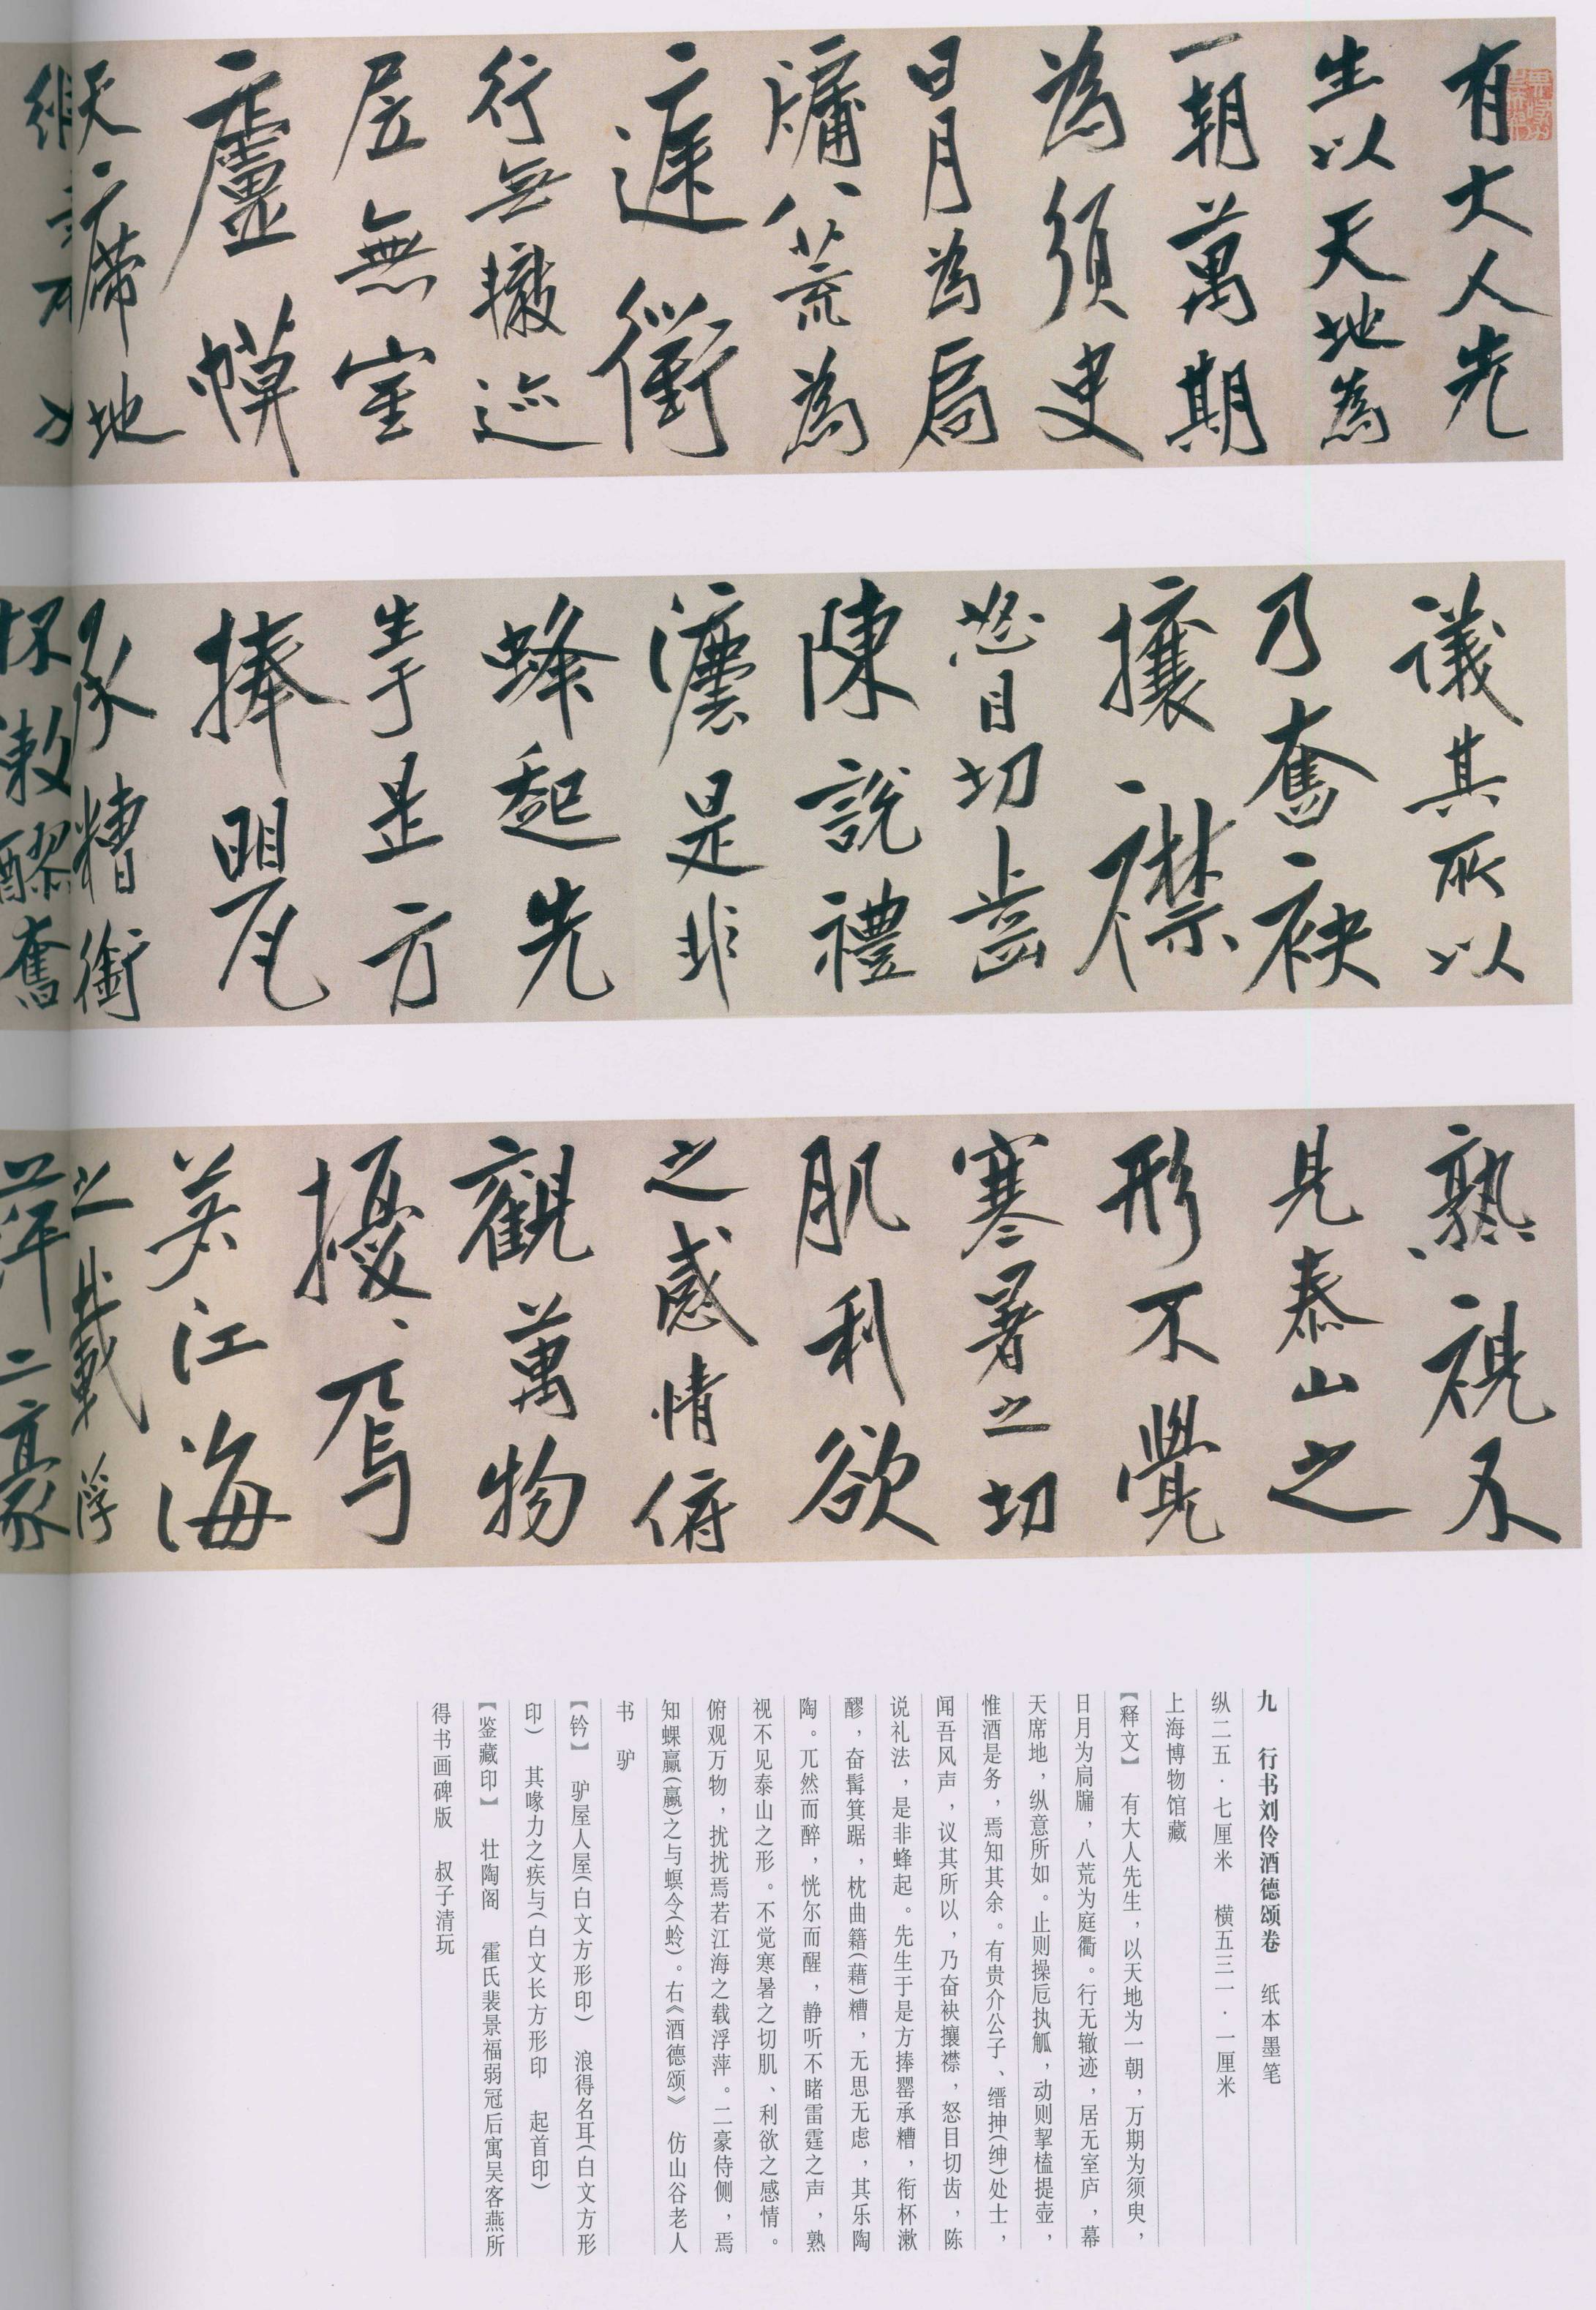 有大人先
生以天地為
一朝萬期
為須臾
日月為扃
牖八荒為
庭衢
行無轍迹
居無室
廬幙
天席地
議其所以
乃奮袂
攘襟
怒目切齒
陳說禮
灋是非
蜂起先
生于是方
捧罌
承糟銜
杯漱醪奮
熟視不
見泰山之
形不覺
寒暑之切
肌利欲
之感情俯
觀萬物
擾、焉
若江海
之載浮
萍二豪
九 行书刘伶酒德颂卷 纸本墨笔
纵二五·七厘米 横五三一·一厘米
上海博物馆藏
【释文】 有大人先生，以天地为一朝，万期为须臾，
日月为扃牖，八荒为庭衢。行无辙迹，居无室庐，幕
天席地，纵意所如。止则操卮执觚，动则挈榼提壶，
惟酒是务，焉知其余。有贵介公子、缙抻(绅)处士，
闻吾风声，议其所以，乃奋袂攘襟，怒目切齿，陈
说礼法，是非蜂起。先生于是方捧罂承糟，衔杯漱
醪，奋髯箕踞，枕曲籍(藉)糟，无思无虑，其乐陶
陶。兀然而醉，恍尔而醒，静听不睹雷霆之声，熟
视不见泰山之形。不觉寒暑之切肌、利欲之感情。
俯观万物，扰扰焉若江海之载浮萍。二豪侍侧，焉
知蜾蠃(蠃)之与螟令(蛉)。右《酒德颂》 仿山谷老人
书 驴
【钤】 驴屋人屋(白文方形印) 浪得名耳(白文方形
印) 其喙力之疾与(白文长方形印 起首印)
【鉴藏印】 壮陶阁 霍氏裴景福弱冠后寓吴客燕所
得书画碑版 叔子清玩